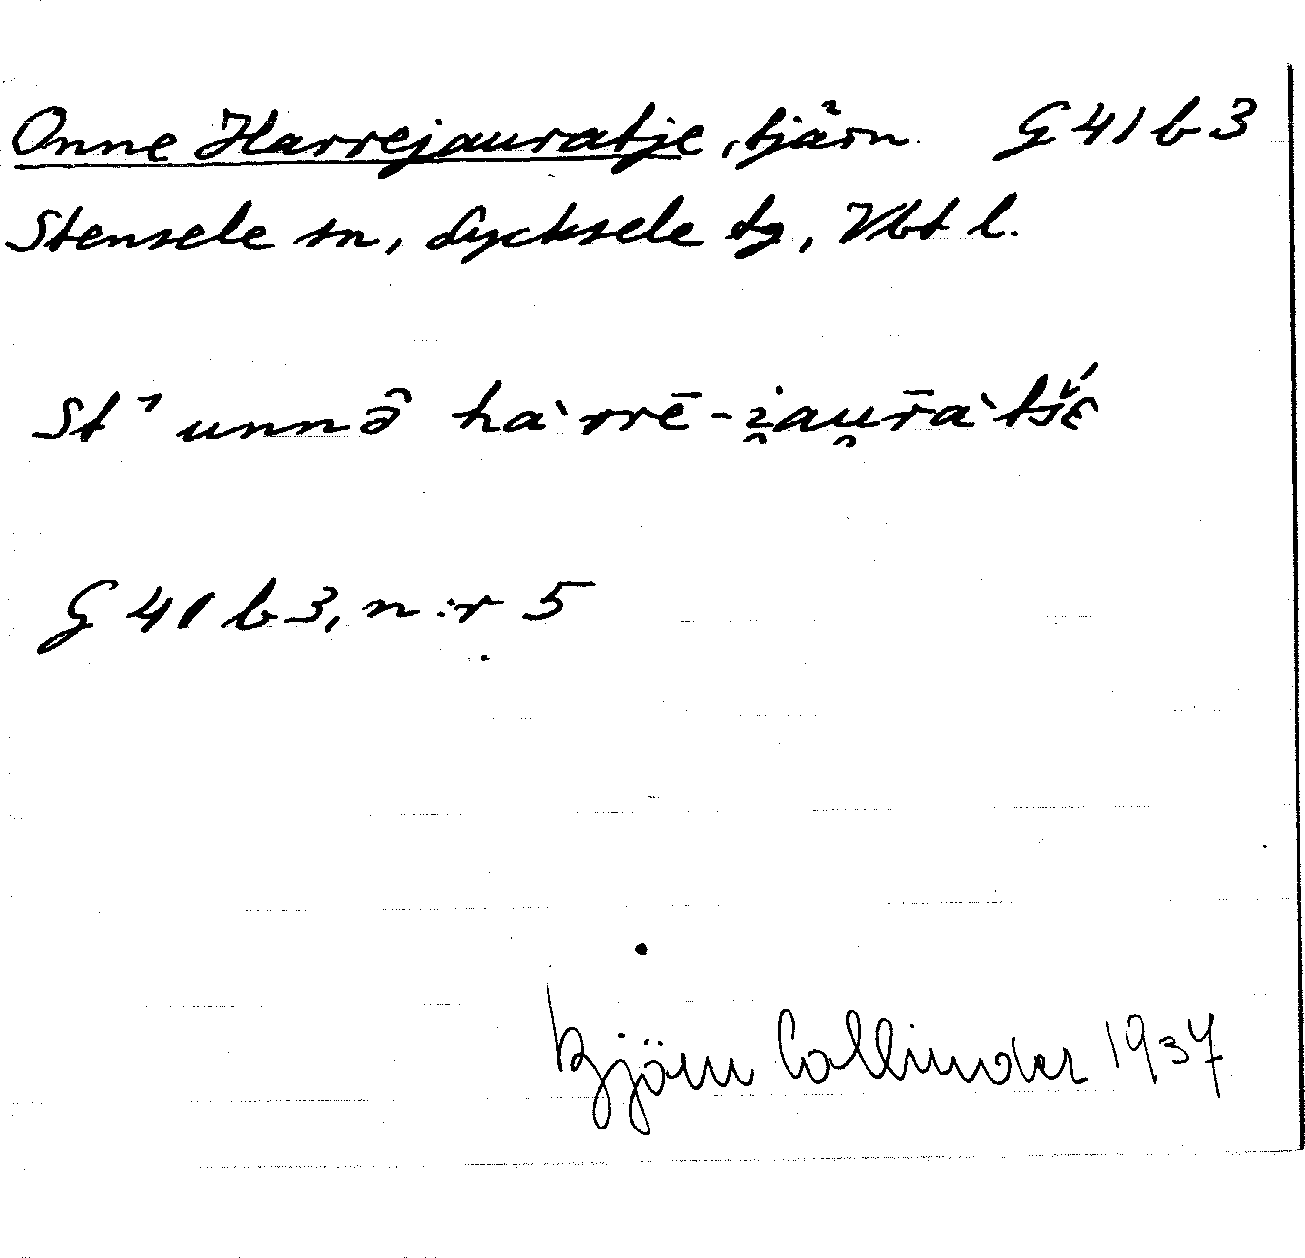 Onne Harrejauratje, tjärn. G 41 b 3
Stensele sn, Lycksele tg, Vbt l.
St ̕ unnə̑ ha`rrē-i̯au̯r̄a`tšɛ̆́
G 41 b 3, n:r 5
Björn Collinder 1937